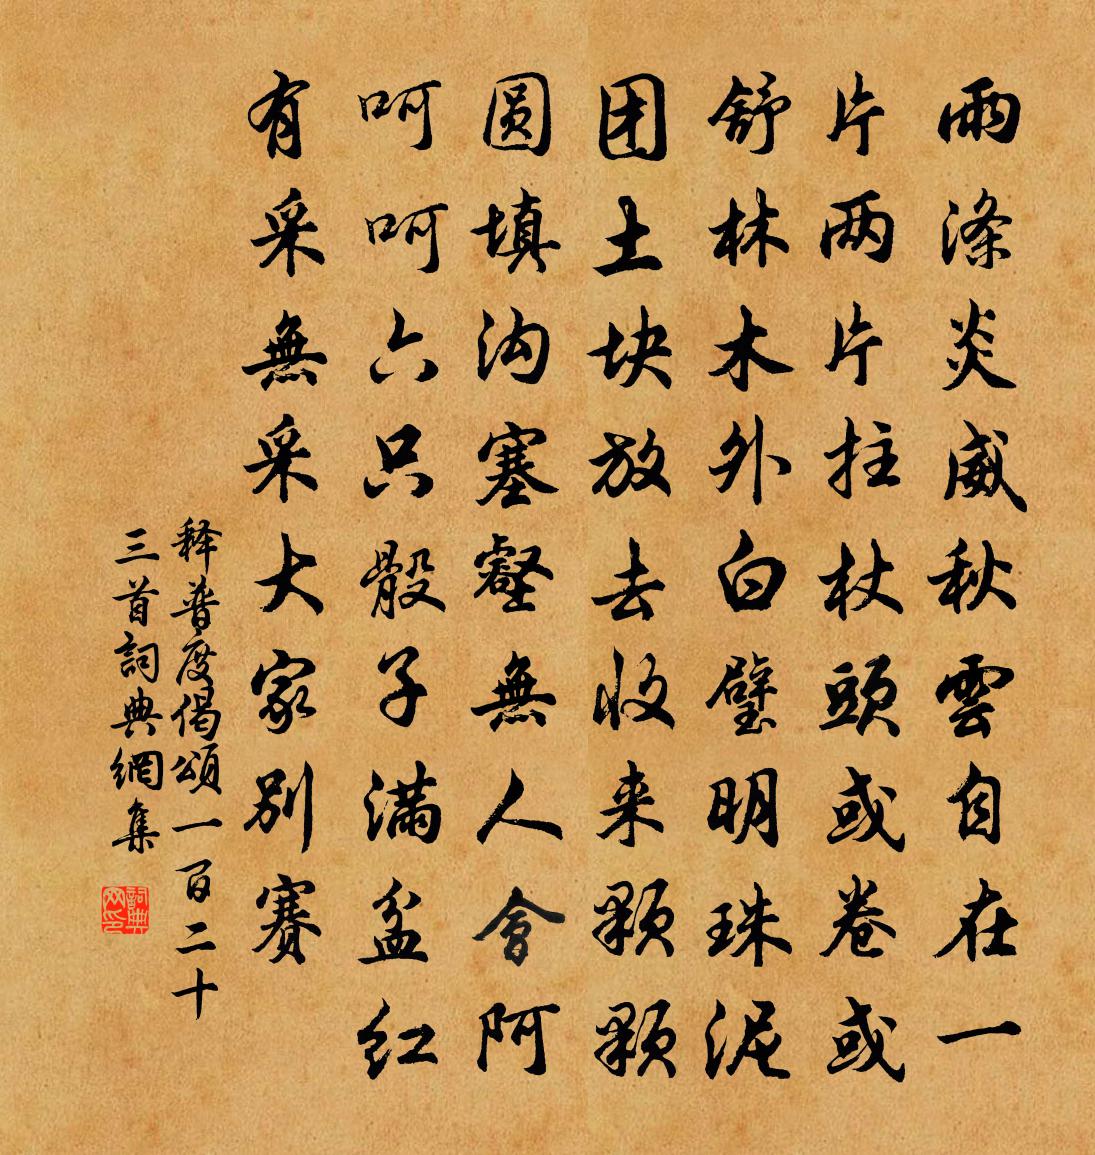 雨滌炎威秋雲自在一
片两片拄杖頭或卷或
舒林木外白璧明珠泥
团土块放去收来颗颗
圆填沟塞壑無人會阿
呵呵六只骰子满盆红
有采無采大家别赛
释普度偈頌一百二十
三首詞典網集
詞典網印